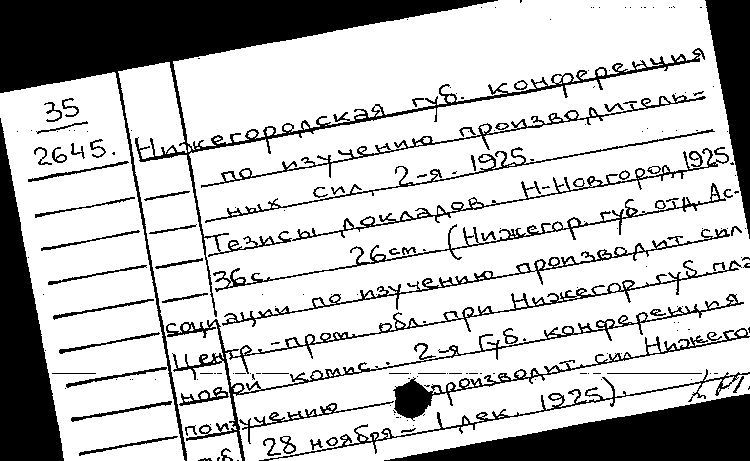 35
2645.
Нижегородская губ. конференция
по изучению производитель=
ных сил, 2-я. 1925.
Тезисы докладов. Н-Новгород, 1925.
36с. 26см. (Нижегор. губ. отд. Ас-
социации по изучению производит. сил
Центр.-пром. обл. при Нижегор. губ. пла
новой комис.. 2-я Губ. конференция
по изучению производит. сил Нижего
губ. 28 ноября - 1 дек. 1925).